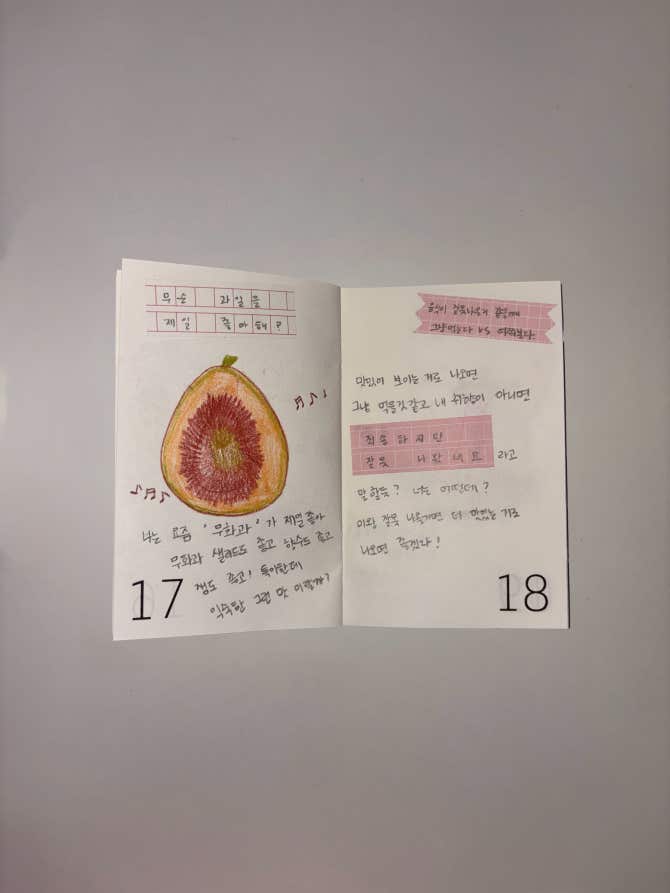 무슨 과일을
제일 좋아해?
나는 요즘 '무화과'가 제일 좋아
무화과 샐러드도 좋고 향수도 좋고
잼도 좋고! 특이한데
익숙한 그런 맛 이랄까?
17
음식이 잘못나왔을때
그냥먹는다 vs 여쭤본다.
맛있어 보이는 거로 나오면
그냥 먹을것같고 내 취향이 아니면
죄송하지만
잘못 나왔네요 라고
말할듯? 너는 어떤데?
이왕 잘못 나올거면 더 맛있는 거로
나오면 좋겠다!
18